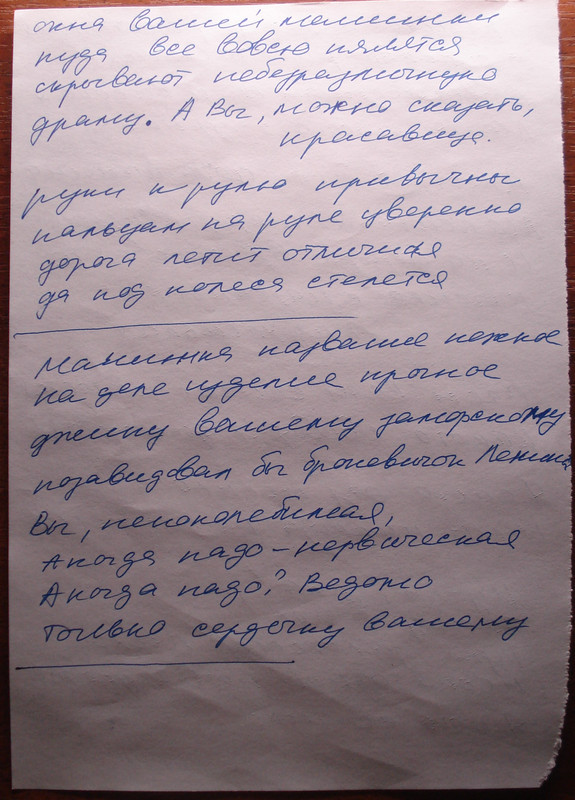 окна вашей машинки
куда все вовсю пялятся
скрывают небезразличную
драму. А Вы, можно сказать,
красавица.
руки к рулю привычны
пальцам на руле уверенно
дорога летит отлично
да под колеса стелется
Машинка название нежное
на деле изделие прочное
джипу вашему заморскому
позавидовал бы броневичок Ленина
Вы, непоколебимая,
А когда надо - нервическая
А когда надо? Ведомо
только сердечку вашему